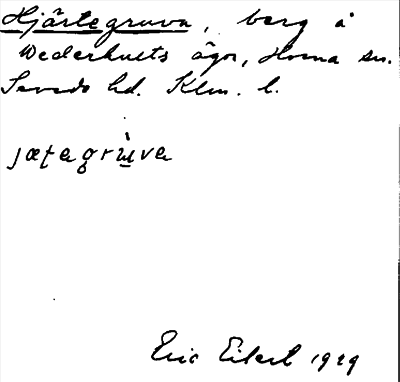 Hjärtegruva, berg å
Wederhults ägor, Horna sn.
Sevede hd. Klm. l.
jæʈegrùva
Eric Eilert 1929